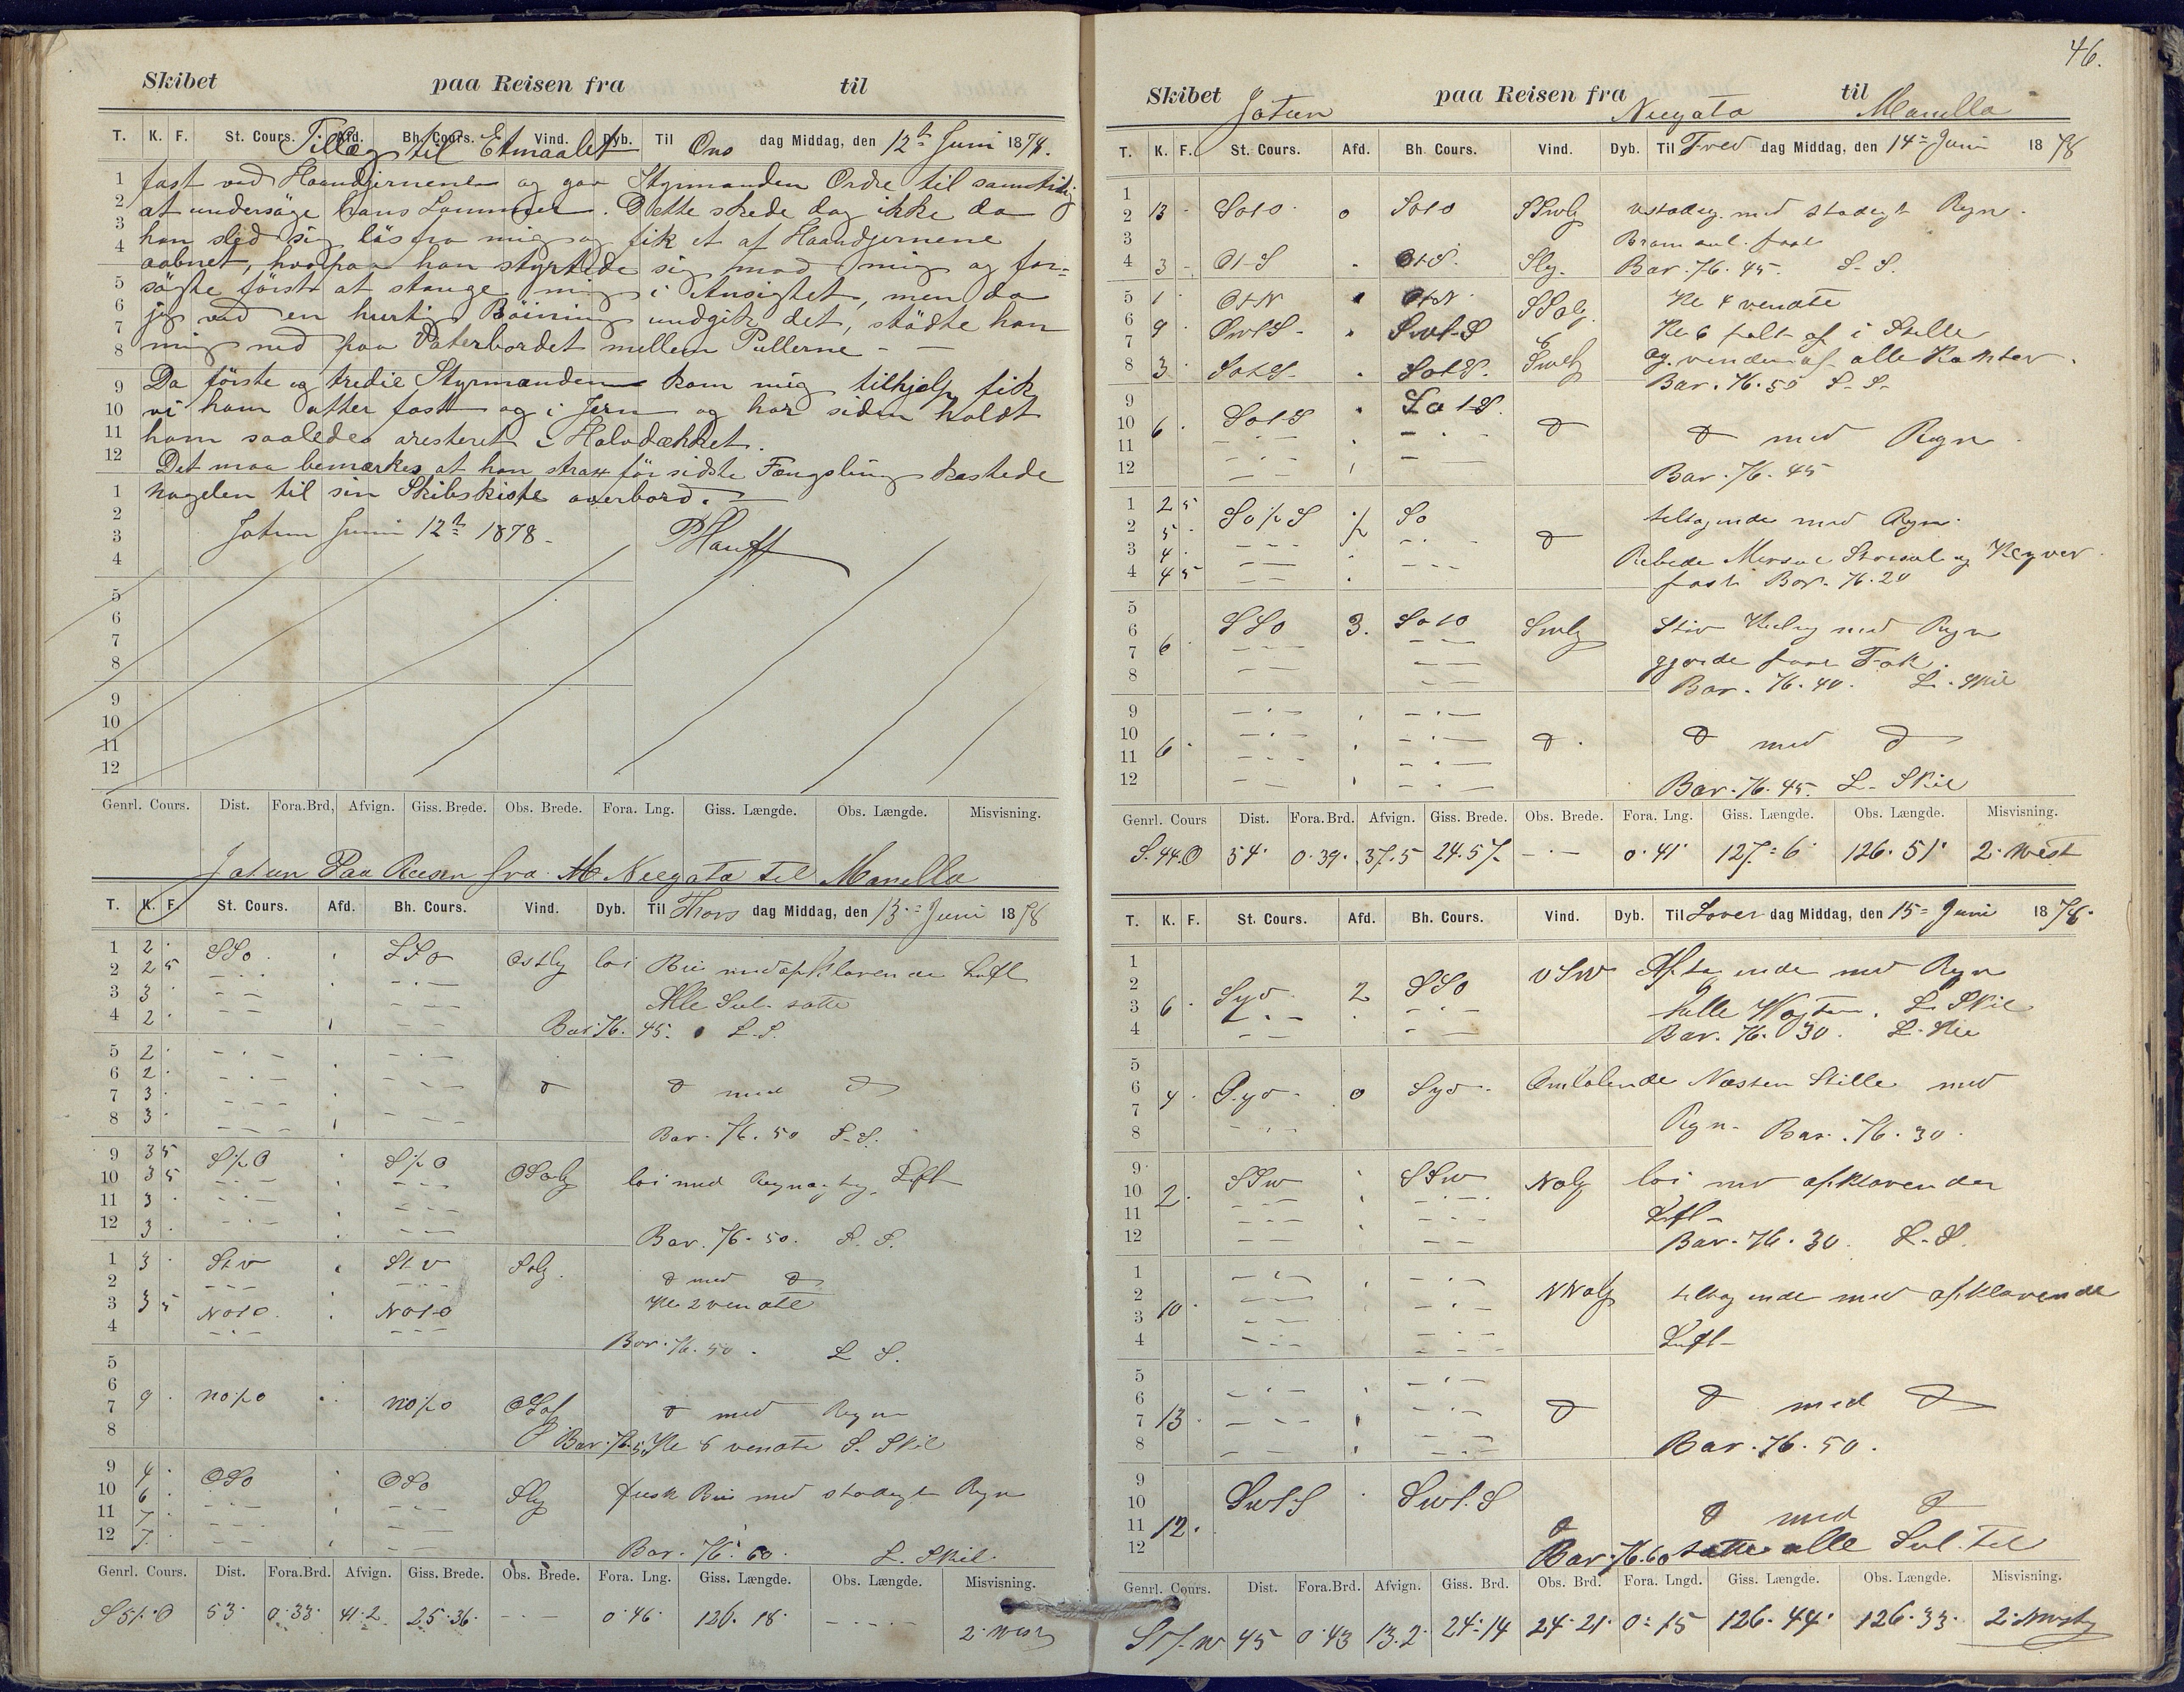 Skibet paa Reisen fra til
T. K. F. St. Cours. Afd. Bh. Cours. Vind. Dyb. Til Ons dag Middag, den 12te Juni 1878.
Tillæg til Etmaalet
fast ved Haandjernene og gav Styrmanden Ordre til samtidig
at undersöge hans Lommer. Dette skede dog ikke da
han sled sig lös fra mig og fik et af Haandjernene
aabnet, hvorpaa han styrtede sig mod mig og for=
sögte först at stange mig i Ansigtet, men da
jeg ved en hurtig Böining undgik det, stödte han
mig ned paa Vaterbordet mellem Pullerne - —
Da förste og tredie Styrmanden kom mig tilhjelp fik
vi ham atter fast og i Jern og har siden holdt
ham saaledes aresteret i Halvdækket.
Det maa bemærkes at han strax för sidste Fængsling kastede
nøgelen til sin Skibskiste overbord. —
Jotun Juni 12te 1878 -
Genrl. Cours. Dist. Fora.Brd, Afvign. Giss. Brede. Obs. Brede. Fora. Lng. Giss. Længde. Obs. Længde. Misvisning.
Jotun Paa Reisen fra Neegata til Manilla
T. K. F. St. Cours. Afd. Bh. Cours. Vind. Dyb. Til Thors dag Middag, den 13 = Juni 1878
1 2 · SSo SSo Ostlig loi Bris med opklarende Luft
2 2 5
3 3 · Alle Seil satte
4 2 · Bar. 76. 45. L.S.
5 2 ·
6 2 ·
7 3 · d d med d
8 3 · Bar. 76. 50 S.S.
9 3 5 S/2O S/2O OSolg loi med Regn og Luft
10 3 5
11 3 ·
12 3 · Bar. 76. 50. S. S.
1 3 · Solg. d med d
2
3 3 5 NotO NotO Kl 2 vendte
4 Bar. 76. 50. L S.
5
6
7 9 · no/2o no/2o d med Regn
8 Bar. 76.5 Kl 6 vendte S. Skil
9 4 · OSo OSo Slg frisk Bris med stadigt Regn
10 6 ·
11 7 ·
12 7 · Bar. 76. 60. L. Skil.
Genrl. Cours. Dist. Fora.Brd. Afvign. Giss. Brede. Obs. Brede. Fora. Lng. Giss. Længde. Obs. Længde. Misvisning.
S 51.O 53 · 0.33 · 41.2 25.36 · — 0.46 · 126. 18 · — 2. West
46.
Skibet Jotun paa Reisen fra Neegata til Manilla
T. K. F. St. Cours. Afd. Bh. Cours. Vind. Dyb. Til Fred dag Middag, den 14 = Juni 1878
1
2 13 · SotO o SotO SSwlg ustadig med stadigt Regn.
3
4 3 - Ot S Ot S. Slg. Bar. 76. 45. S. S.
5 1 · OtN OtN SSolg Kl 4 vendte
6
7 9 · SwtS SwtS Kl 6 falt af i Stille
8 3 · SotS SotS. Swlg og vinden af alle Kanter.
Bar. 76. 50 S. S.
9
10 6 · SotS SotS. d d med Regn
11
12 Bar. 76. 45
1 2 5 So/2S 1/2 So tiltagende med Regn.
2 5 ·
3 4 · d Rebede Mersse Storseil og Klyver
4 4 5 fast Bar. 76. 20
5
6 SSo 3. SotO Swlg Stiv Kuling med Regn
7 6 · gjorde fast Fok.
8 Bar. 76. 40. L. Skil
9
10
11 6 · d. d med d
12 Bar. 76. 45. L. Skil
Genrl. Cours Dist. Fora.Brd. Afvign. Giss. Brede. Obs. Brede. Fora. Lng. Giss. Længde. Obs. Længde. Misvisning.
S.44.O 54 · 0.39. 37.5 24.57 — 0.41 · 127.6 · 126. 51 · 2. West
T. K. F. St. Cours. Afd. Bh. Cours. Vind. Dyb. Til Lover dag Middag, den 15 = Juni 1878.
1
2 Syd 2 SSo Aftagende med Regn
3 6 · L Skil
4 Bar. 76. 30.
5
6 4 · Syd o Syd Omløbende Næsten Stille med
7
8 Regn. Bar. 76. 30.
9
10 2 · SSw SSw Nolg loi med opklarende
11 Luft
12 Bar. 76. 30. L.S.
1
2 NNolg tiltagende med opklarende
3 10 ·
4 Luft
5
6
7 13 · d d med d
8 Bar. 76. 50.
9
10 SwtS SwtS
11 12 · d d med d
12 Bar. 76.60 satte alle Seil til
Genrl. Cours. Dist. Fora.Brd. Afvign. Giss. Brd. Obs. Brd. Fora. Lngd. Giss. Længde. Obs. Længde. Misvisning.
S17.w 45 0.43 13.2 · 24.14 24.21 · 0.15 126.44 · 126.33 · 2. West